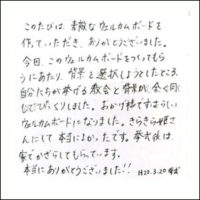 このたびは、素敵なウェルカムボードを
作っていただき、ありがとうございました。
今回、このウェルカムボードをつくってもら
うにあたり、背景を選択しようとしたところ、
自分たちが挙げる教会と背景が全く同
じでびっくりしました。おかげ様ですばらしい
ウェルカムボードになりました。きらきら姫さ
んにして本当によかったです。挙式後は、
家でかざらしてもらっています。
本当にありがとうございました!!
H22.3.20 挙式